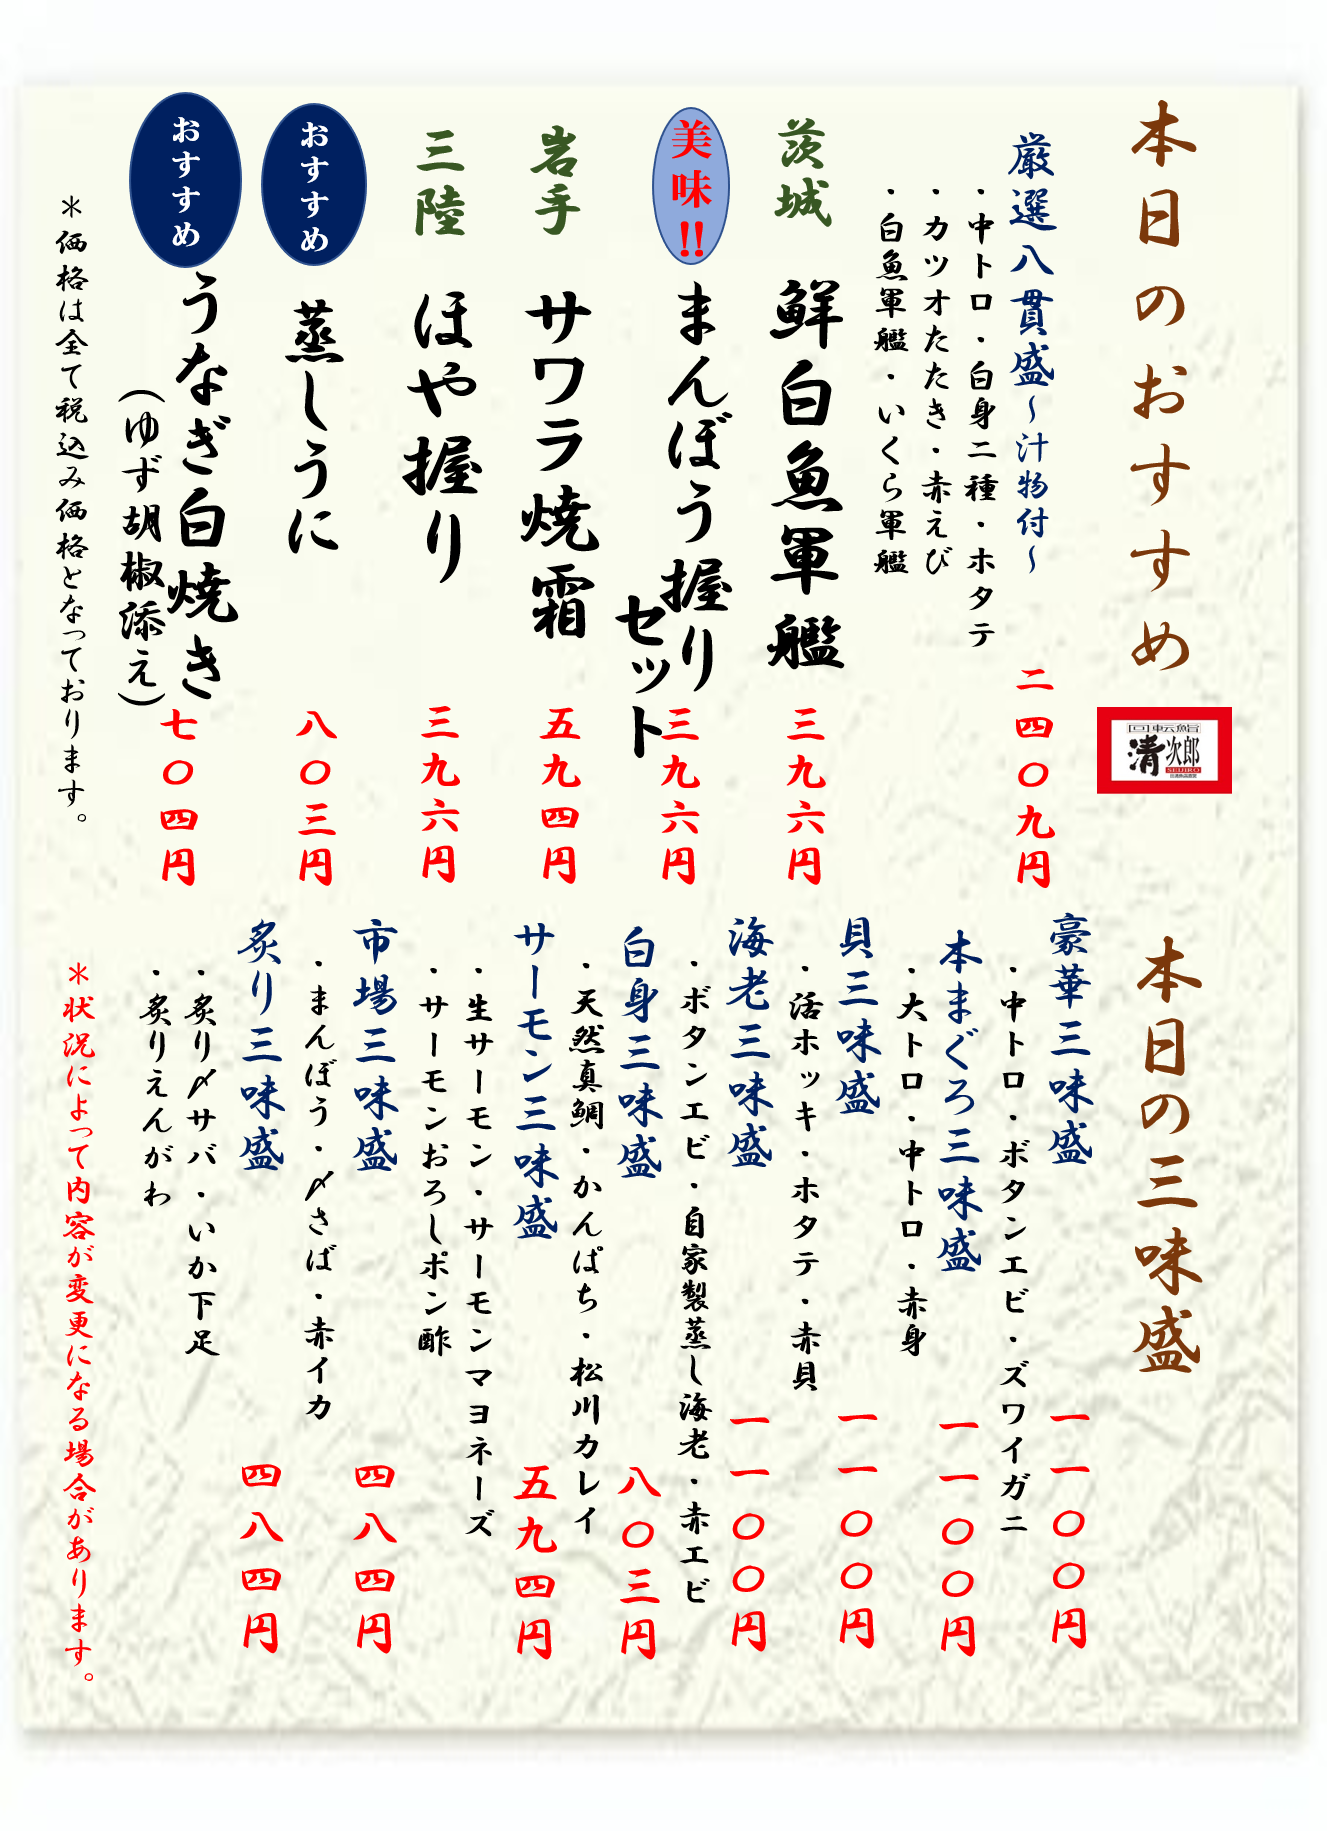 本日のおすすめ
厳選八貫盛～汁物付～
二四〇九円
・中トロ・白身二種・ホタテ
・カツオたたき・赤えび
・白魚軍艦・いくら軍艦
茨城
鮮白魚軍艦
三九六円
美味!!
まんぼう握り
セット
三九六円
岩手
サワラ焼霜
五九四円
三陸
ほや握り
三九六円
おすすめ
蒸しうに
八〇三円
おすすめ
うなぎ白焼き
(ゆず胡椒添え)
七〇四円
＊価格は全て税込み価格となっております。
回転鮨
清次郎
SEIJIRO
本日の三味盛
豪華三味盛
一一〇〇円
・中トロ・ボタンエビ・ズワイガニ
本まぐろ三味盛
一一〇〇円
・大トロ・中トロ・赤身
貝三味盛
一一〇〇円
・活ホッキ・ホタテ・赤貝
海老三味盛
一一〇〇円
・ボタンエビ・自家製蒸し海老・赤エビ
白身三味盛
八〇三円
・天然真鯛・かんぱち・松川カレイ
サーモン三味盛
五九四円
・生サーモン・サーモンマヨネーズ
・サーモンおろしポン酢
市場三味盛
四八四円
・まんぼう・〆さば・赤イカ
炙り三味盛
四八四円
・炙り〆サバ・いか下足
・炙りえんがわ
＊状況によって内容が変更になる場合があります。